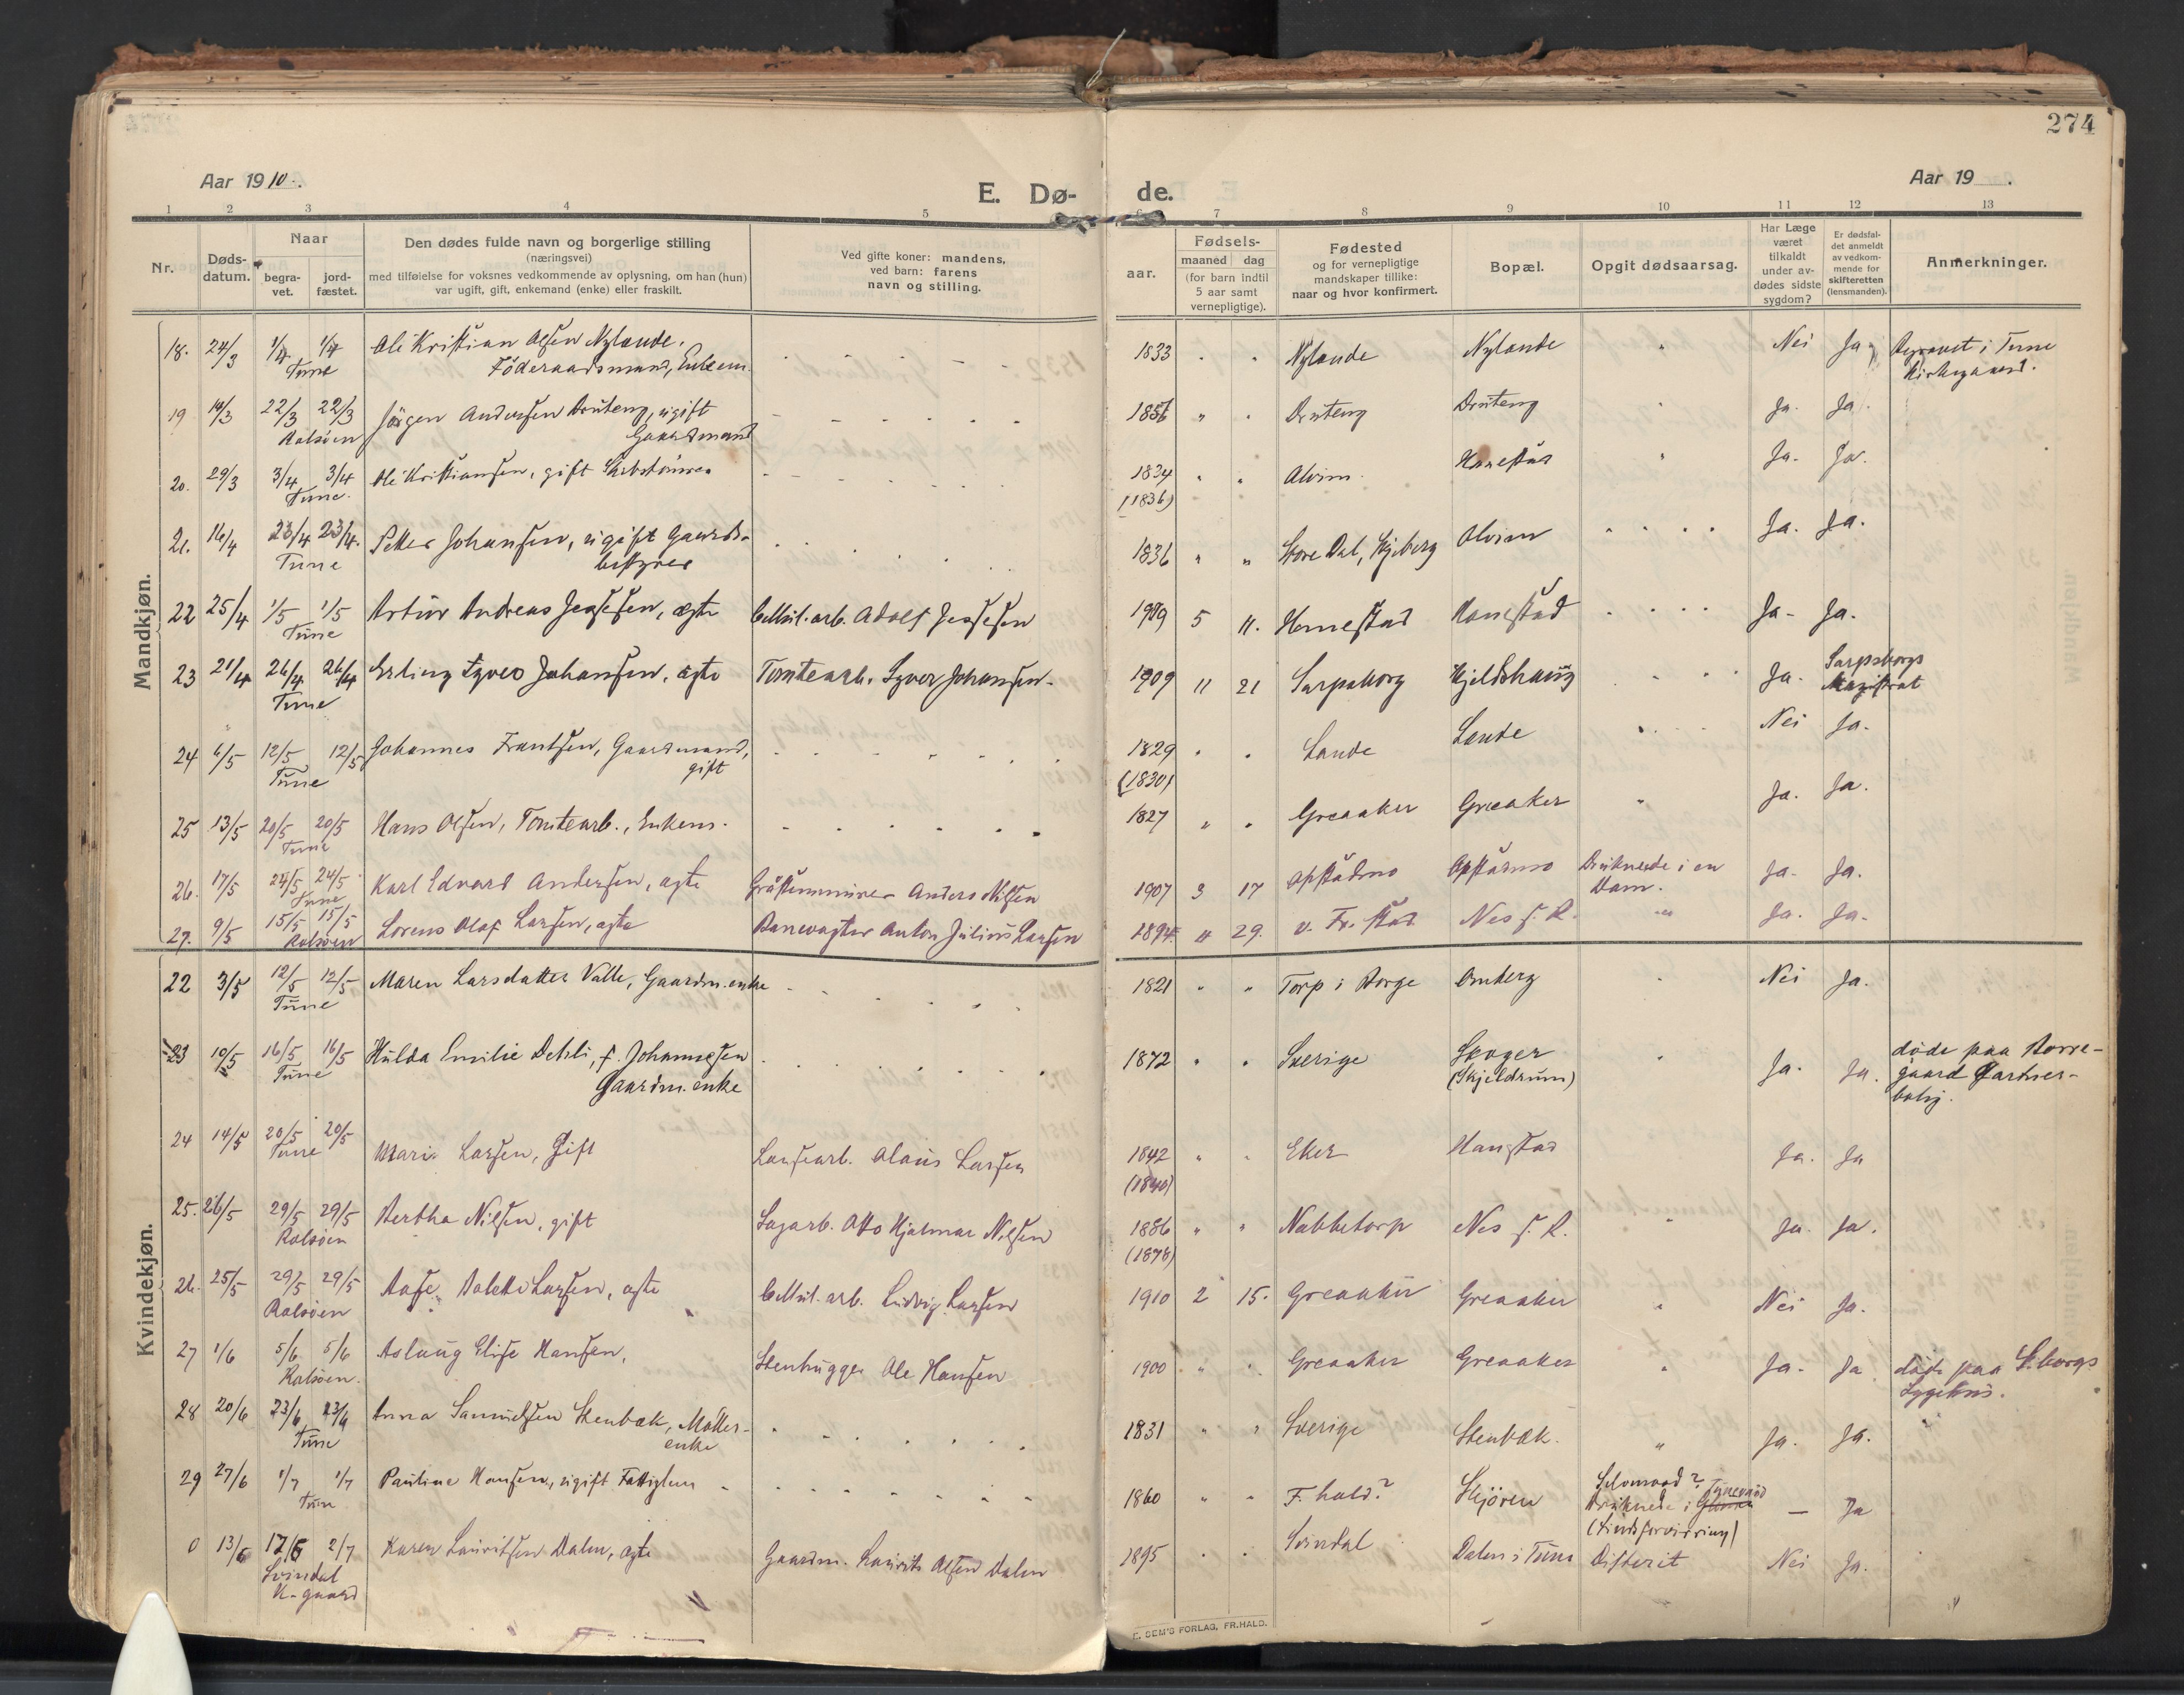 274
Aar 1910.
E. Dø-
de.
Aar 19 .
1 2 3 4 5 6 7 8 9 10 11 12 13
Nr.
Døds-
datum.
Naar
begra-
vet.
jord-
fæstet.
Den dødes fulde navn og borgerlige stilling
(næringsvei)
med tilføielse for voksnes vedkommende av oplysning, om han (hun)
var ugift, gift, enkemand (enke) eller fraskilt.
Ved gifte koner: mandens,
ved barn: farens
navn og stilling.
aar.
Fødsels-
maaned dag
(for barn indtil
5 aar samt
vernepligtige).
Fødested
og for vernepligtige
mandskaper tillike:
naar og hvor konfirmert.
Bopæl.
Opgit dødsaarsag.
Har Læge
været
tilkaldt
under av-
dødes sidste
sygdom?
Er dødsfal-
det anmeldt
av vedkom-
mende for
skifteretten
(lensmanden).
Anmerkninger.
Mandkjøn.
18. 24/3 1/4 1/4 Ole Kristian Olsen Nylande. 1833 " " Nylande Nylande " Nei Ja Begravet i Tune
Tune Föderaadsmand, Enkem. Kirkegaard.
19 19/3 22/3 22/3 Jörgen Andersen Bruteng, ugift 1856 " " Bruteng Bruteng " Ja. Ja.
Rolsöen Gaardmand
20. 29/3 3/4 3/4 Ole Kristiansen, gift 1834 " " Alvim " Ja. Ja.
Tune. (1836)
21. 16/4 23/4 23/4. Petter Johansen, ugift Gaards- 1836 " " Store Dal, Skjeberg Alvim Ja. Ja.
Tune bestyrer
22 25/4 1/5 1/5 Artur Andreas Jessesen, ægte Cellul.arb. Adolf Jessesen 1909 5 11. Hanestad Hanestad Ja- Ja.
Tune
23 21/4 26/4 26/4 Erling Syver Johansen, ægte Tomtearb. Syver Johansen 1909 11 21 Sarpsborg Hjeldshaug Ja. Sarpsborgs
Tune Magistrat
24 6/5 12/5 12/5 Johannes Frantsen, Gaardmand, 1829 " " Lande Lande Nei Ja.
Tune gift (1830)
25 13/5 20/5 20/5 Hans Olsen, Tomtearb., Enkem. 1827 " " Greaaker Greaaker " Ja. Ja.
Tune
26. 17/5 24/5 24/5 Karl Edvard Andersen, ægte Anders Nilsen 1907 3 17 Opstadmo Opstadmo Druknede i en Ja. Ja.
Tune Dam.
27. 9/5 15/5 15/5 Lorens Olaf Larsen, ægte Banevogter Anton Julius Larsen 1894 4 29. v. Fr.stad Nes f. R. " Ja. Ja.
Rolsöen
Kvindekjøn.
22 3/5 12/5 12/5 Maren Larsdatter Valle, Gaardm.enke 1821 " " Torp i Borge Omberg " Nei Ja.
Tune
23 10/5 16/5 16/5 Hulda Emilie Dehli, f. Johannesen 1872 " " Sverige " Ja. Ja. döde paa Borre-
Tune Gaardm.enke (Skjeldrum) gaard Gartner-
bolig.
24 14/5 20/5 20/5 Marie Larsen, Gift Olaus Larsen 1842 " " Eker Hanstad Ja. Ja
Tune (1840)
25. 26/5 29/5 29/5 Bertha Nilsen, gift Sagarb. Otto Hjalmar Nilsen 1886 " " Nabbetorp Nes f. R. " Ja. Ja.
Rolsöen (1878)
26. 25/5 29/5 29/5 Aase Larsen, ægte Cellul. arb. Ludvig Larsen 1910 2 15. Greaaker Greaaker " Nei Ja.
Rolsöen
27 1/6 5/6 5/6 Aslaug Elise Hansen, Stenhugger Ole Hansen 1900 " " Greaaker Greaaker " Ja. Ja döde paa S.borgs
Rolsöen. Sygehus.
28 20/6 23/6 23/6 Anna Samuelsen Stenbæk, Möller- 1831 " " Sverige Stenbæk. " Ja. Ja.
Tune enke
29 27/6 1/7 1/7 Pauline Hansen, ugift Fattiglem 1860 " " F.hald? Skjören Selvmord? Tunevand
Tune Druknede i — Ja
(Sindsforvirring)
0 13/6 17/6 2/7 Karen Lauritsen Dalen, ægte Gaardm. Laurits Olsen Dalen 1895 " " Svindal Dalen i Tune Difterit Nei Ja.
Svindal
K-gaard
E. SEM'S FORLAG, FR.HALD.